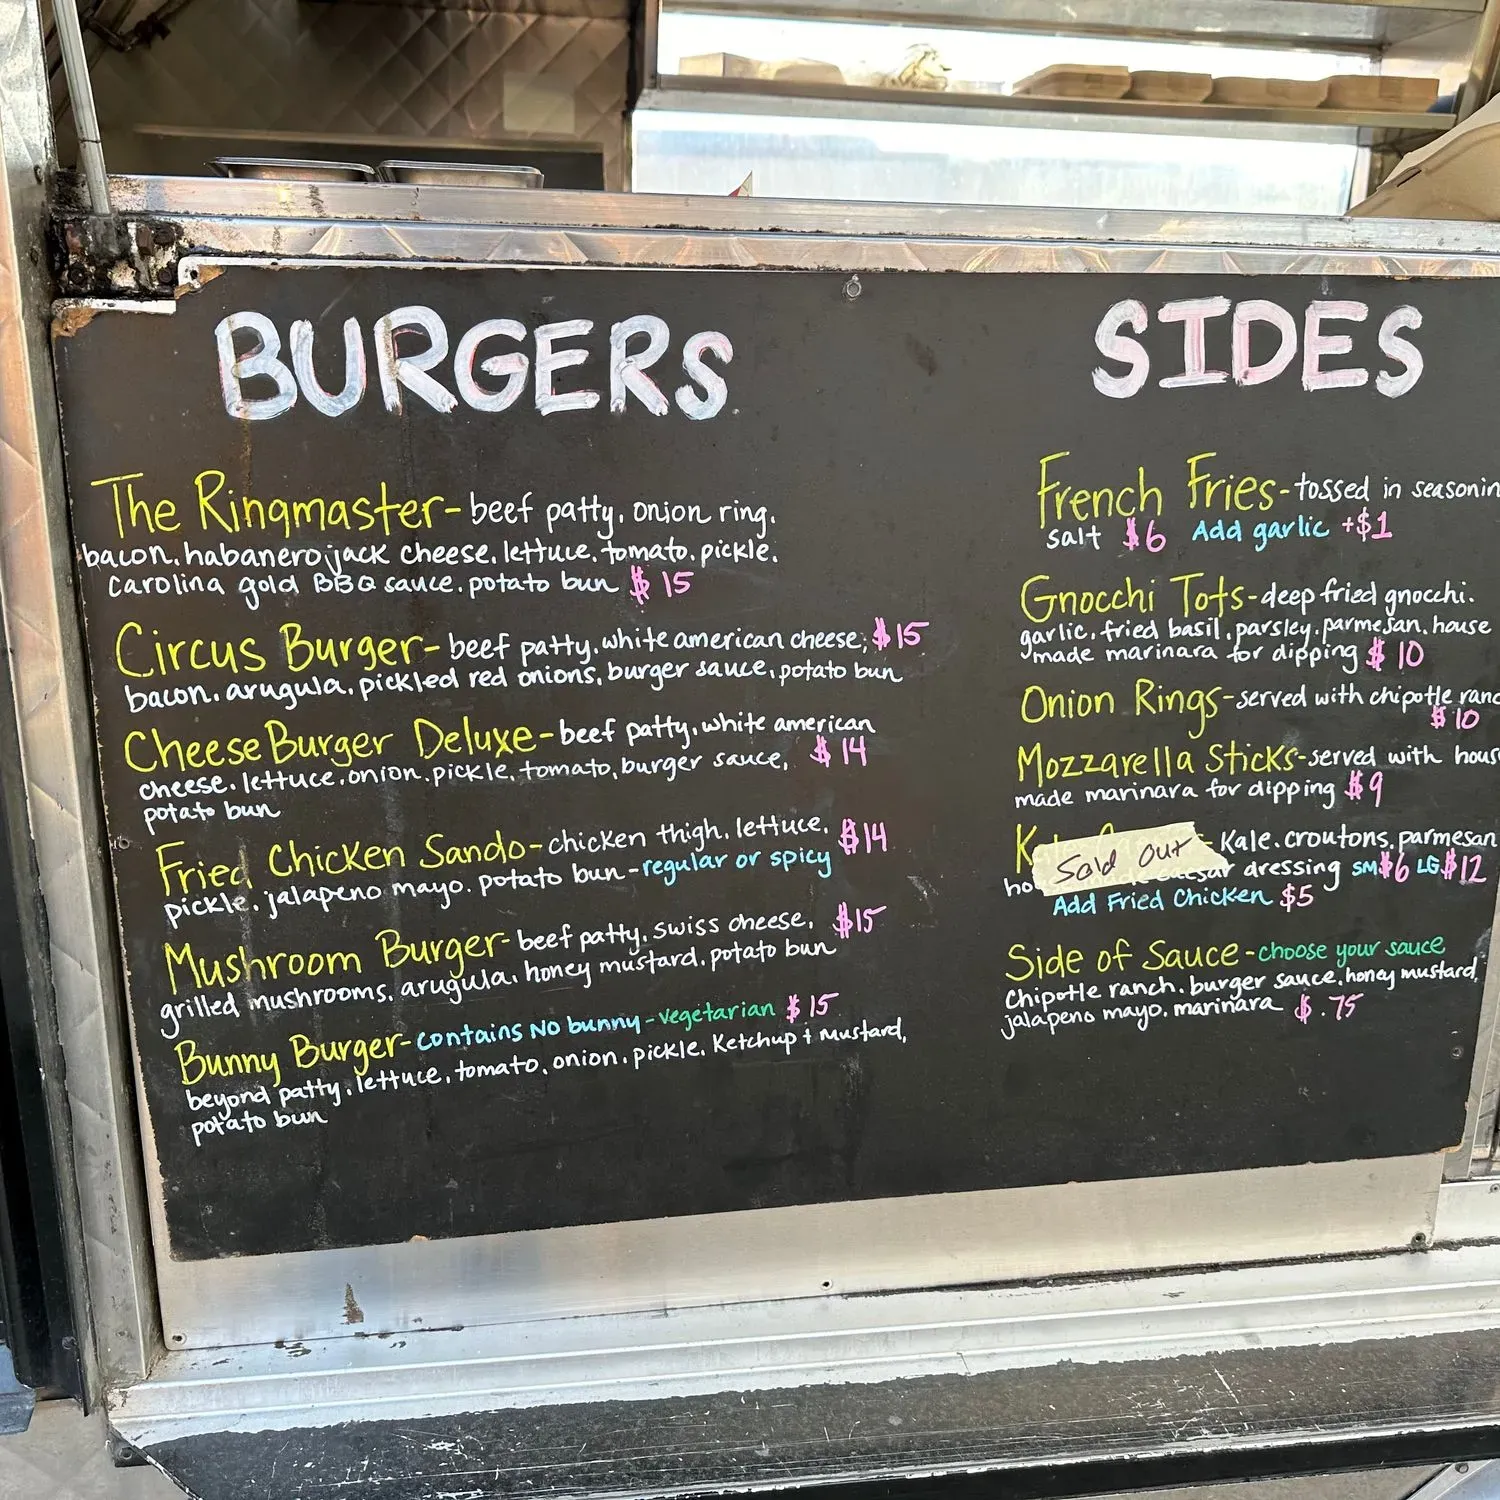 BURGERS
The Ringmaster- beef patty, onion ring,
bacon, habanero jack cheese, lettuce, tomato, pickle,
Carolina gold BBQ sauce, potato bun $15
Circus Burger- beef patty, white american cheese, $15
bacon, arugula, pickled red onions, burger sauce, potato bun
CheeseBurger Deluxe- beef patty, white american
cheese, lettuce, onion, pickle, tomato, burger sauce, $14
potato bun
Fried Chicken Sando- chicken thigh, lettuce, $14
pickle, jalapeno mayo, potato bun - regular or spicy
Mushroom Burger- beef patty, swiss cheese, $15
grilled mushrooms, arugula, honey mustard, potato bun
Bunny Burger- contains NO bunny - vegetarian $15
beyond patty, lettuce, tomato, onion, pickle, Ketchup & mustard,
potato bun
SIDES
French Fries- tossed in seasonin
salt $6 Add garlic +$1
Gnocchi Tots- deep fried gnocchi,
garlic, fried basil, parsley, parmesan, house
made marinara for dipping $10
Onion Rings- served with chipotle ranc
$10
Mozzarella Sticks- served with hous
made marinara for dipping $9
Sold Out - Kale, croutons, parmesan
dressing SM $6 LG $12
Add Fried Chicken $5
Side of Sauce - choose your sauce
Chipotle ranch, burger sauce, honey mustard,
jalapeno mayo, marinara $.75